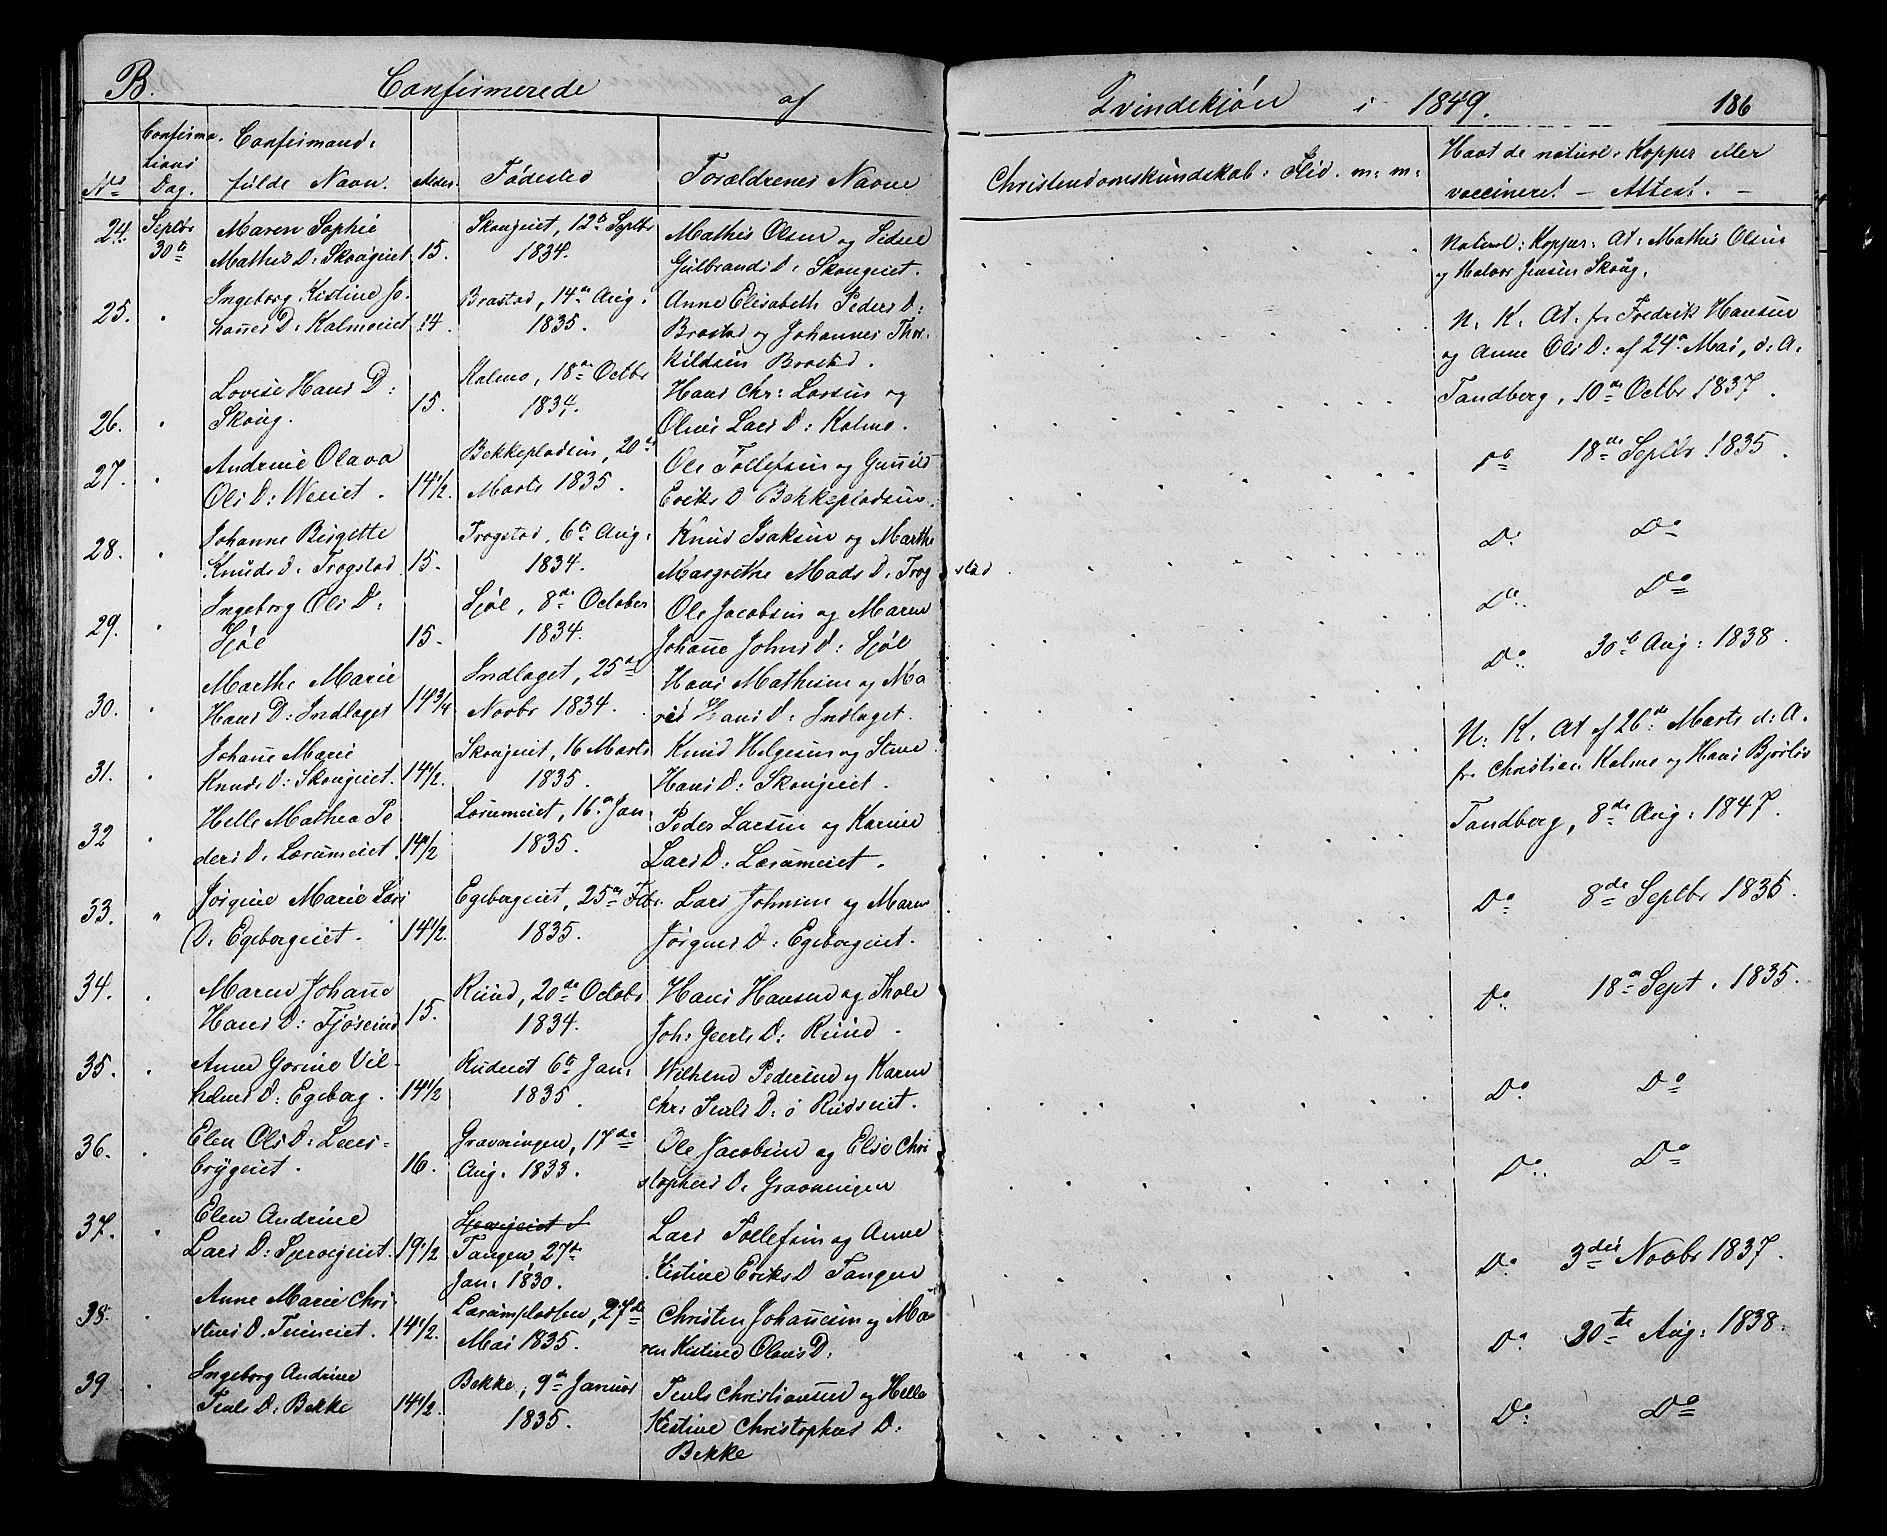 B. Confirmerede af Qvindekjøn i 1849. 186
No Confirmations Dag. Confirmandens fulde Navn. Alder. Fødested Forældrenes Navne Christendomskundskab: Flid. m: m: Havt de naturl: Kopper eller vaccineret – Attest. –
24. Septbr 30te Maren Sophie Skougeiet, 12te Septbr Mathis Olsen og Sidsel Naturl: Kopper: At: Mathis Olsen
Mathis D: Skougeiet 15. 1834. Gulbrands D: Skougeiet. og Halvor Jensen Skoug.
25. Ingeborg Kistine Jo- Brastad, 14de Aug. Anne Elisabeth Peders D: N: K: At: fr Fredrik Hansen
hannes D: Kalmoeiet 14. 1835. Brastad og Johannes Thor- og Anne Ols D: af 24de Mai, d: A.
kildsen Brastad.
26. Lovise Hans D: Kalmo, 18de Octbr Hans Chr: Larsen og Tandberg, 10de Octbr 1837.
Skoug. 15. 1834. Lars D: Kalmo.
27. Andrine Olava Bekkepladsen, 20de Ole Tollefsen og Gunild Do 18de Septbr 1835.
Ols D: 14 1/2. Marts 1835. Eriks D Bekkepladsen.
28. Johanne Birgitte Trogstad, 6te Aug: Knud Isaksen og Marthe D: Do
Knuds D: Trogstad 15. 1834. Margrethe Mads D: Trogstad
29. Ingeborg Ols D: Sjøl, 8de October Ole Jacobsen og Maren Do: Do
Sjøl 15. 1834. Johanne Johns D: Sjøl
30. Marthe Marie Indlaget, 25de Hans Mathisen og Ma- Do: 30te Aug: 1838.
Hans D: Indlaget 14 3/4 Novbr 1834. Hans D: Indlaget.
31. Johanne Marie Skougeiet, 16 Marts Knud Helgesen og N: K. At af 26de Marts d: A.
Knuds D: Skougeiet. 14 1/2. 1835. Hans D: Skougeiet. fr Christian Kalmo og Hans
32 Helle Mathea Pe- 16de Jan Peder Larsen og Karine Tandberg, 8de Aug: 1847.
ders D: Lerumeiet. 14 1/2 1835. Lars D: Lerumeiet.
33. " Jørgine Marie Lars Egebergeiet, 25de Febr. Lars Johnsen og Maren Do 8de Septbr 1835.
D: Egebergeiet. 14 1/2. 1835. Jørgens D: Egebergeiet.
34. Maren Johanne Rund, 20de Octobr Hans Hansen og Do 18de Sept. 1835.
Hans D: 15. 1834. Joh: Geerts D: Rund.
35. Anne Gorine Vil- 6te Jan: Wilhelm Pedersen og Karen Do: Do
helms D: Egeberg. 14 1/2 1835. Chr:
36. Elen Ols D: Gravningen, 17de Ole Jacobsen og Else Chri- Do: Do
16. Aug. 1833. stophers D: Gravningen
37. Elen Andrine Lars Tollefsen og Anne Do: 3die Novbr 1837.
Lars D: 19 1/2 Tangen 27de Kistine Eriks D Tangen
Jan: 1830.
38. Anne Marie Chri- 27de Christen Johannesen og Ma- Do 30te Aug: 1838.
stens D. 14 1/2. Mai 1835. ren Kistine Olaves D:
39 Ingeborg Andrine Bekke, 9de Januar Christiansen og Helle D: Do
D: Bekke 14 1/2. 1835. Kistine Christophers D:
Bekke